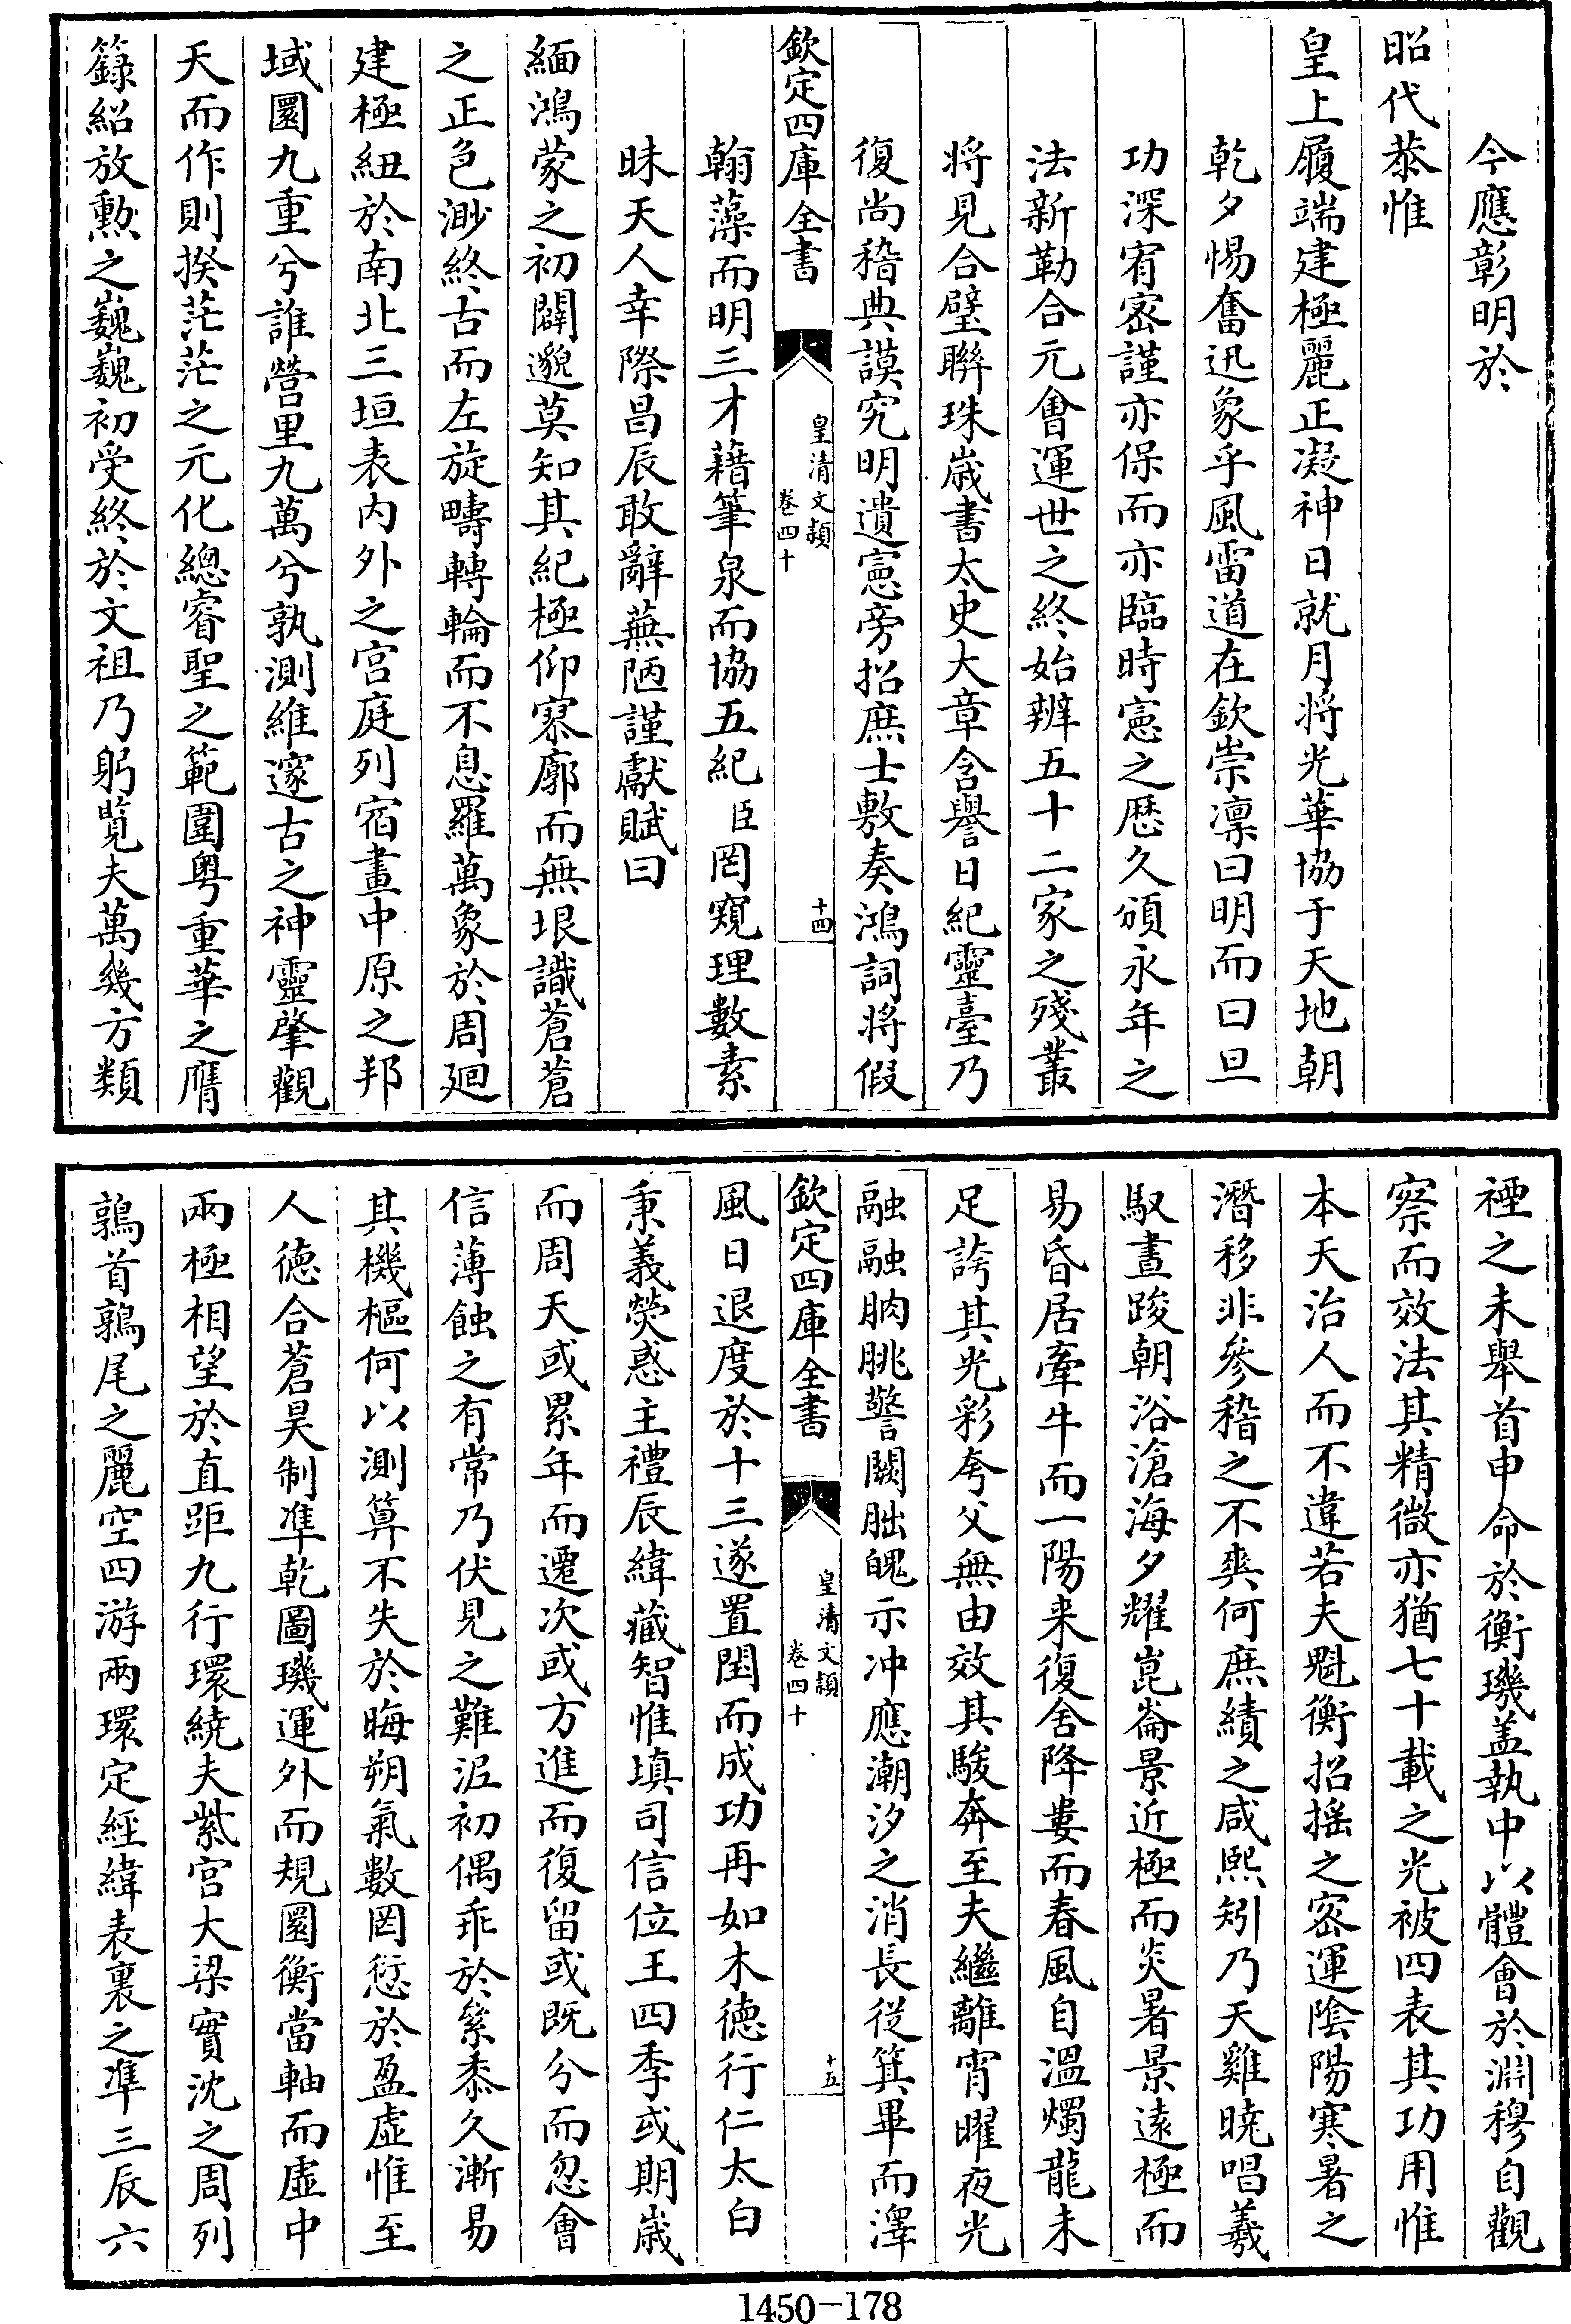 今應彰明於
昭代恭惟
皇上履端建極麗正凝神日就月將光華協于天地朝
乾夕惕奮迅象乎風雷道在欽崇凛曰明而曰旦
功深宥密謹亦保而亦臨時憲之歴久頒永年之
法新勒合元㑹運世之終始辨五十二家之殘叢
將見合璧聨珠歳書太史大章含譽日紀靈臺乃
復尚稽典謨究明遺憲旁招庶士敷奏鴻詞將假
欽定四庫全書
皇清文穎
卷四十
十四
翰藻而明三才藉筆泉而協五紀臣罔窺理數素
昧天人幸際昌辰敢辭蕪陋謹獻賦曰
緬鴻蒙之初闢邈莫知其紀極仰寥廓而無垠識蒼蒼
之正色渺終古而左旋疇轉輪而不息羅萬象於周廻
建極紐於南北三垣表内外之宫庭列宿畫中原之邦
域圜九重兮誰營里九萬兮孰測維邃古之神靈肇觀
天而作則揆茫茫之元化總睿聖之範圍粤重華之膺
籙紹放勲之巍巍初受終於文祖乃躬覧夫萬幾方類
禋之未舉首申命於衡璣盖執中以體㑹於淵穆自觀
察而效法其精微亦猶七十載之光被四表其功用惟
本天治人而不違若夫魁衡招揺之密運隂陽寒暑之
潛移非參稽之不爽何庶績之咸熙矧乃天雞曉唱羲
馭晝踆朝浴滄海夕耀崑崙景近極而炎暑景遠極而
易昏居牽牛而一陽来復舍降婁而春風自溫燭龍未
足誇其光彩夸父無由效其駿奔至夫繼離宵曜夜光
融融朒朓警闕朏魄示冲應潮汐之消長従箕畢而澤
欽定四庫全書
皇清文穎
卷四十
十五
風日退度於十三遂置閏而成功再如木德行仁太白
秉義熒惑主禮辰緯藏智惟填司信位王四季或期歳
而周天或累年而遷次或方進而復留或既分而忽㑹
信薄蝕之有常乃伏見之難泥初偶乖於絫黍久漸易
其機樞何以測算不失於晦朔氣數罔愆於盈虚惟至
人德合蒼昊制凖乾圖璣運外而規圜衡當軸而虚中
兩極相望於直距九行環繞夫紫宫大梁實沈之周列
鶉首鶉尾之麗空四游兩環定經緯表裏之凖三辰六
1450-178